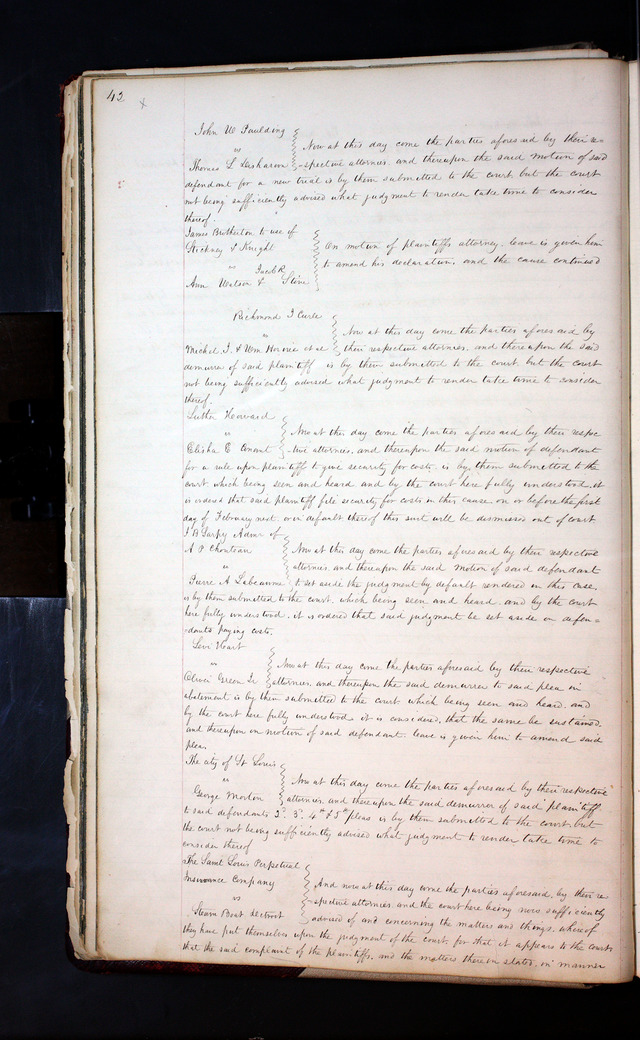 42 x
John W Paulding
vs
Now at this day come the parties aforesaid by their re=
Thomas L
=spective attornies, and thereupon the said motion of said
defendant for a new trial is by them submitted to the court but the court
not being sufficiently advised what judgment to render take time to consider
thereof
James Brotherton to use of
Stickney & Knight
On motion of plaintiffs attorney, leave is given him
vs Jacob R
to amend his declaration, and the cause continued
Ann Watson & Stine
Richmond J Curle
vs
Now at this day come the parties aforesaid by
Michel J. & Wm et al
their respective attornies, and thereupon the said
demurrer of said plaintiff is by them submitted to the court, but the court
not being sufficiently advised what judgment to render take time to consider
thereof.
Luther Heoward
vs
Now at this day come the parties aforesaid by their respec
Elisha E
tive attornies, and thereupon the said motion of defendant
for a rule upon plaintiff to give security for costs, is by them submitted to the
court which being seen and heard and by the court here fully understood, it
is ordered that said plaintiff file security for costs in this cause on or before the first
day of February next, or in default thereof this suit will be dismissed out of court
J B Sarpy Admr of
A P Chouteau
Now at this day come the parties aforesaid by their respective
vs
attornies, and thereupon the said motion of said defendant
Pierre A Labeaume
to set aside the judgment by default rendered in this case,
is by them submitted to the court, which being seen and heard and by the court
here fully understood, it is ordered that said judgment be set aside on defen=
=dants paying costs.
Levi Heart
vs
Now at this day come the parties aforesaid by their respective
Oliver Green Jr
attornies, and thereupon the said demurrer to said plea in
abatement is by them submitted to the court which being seen and heard, and
by the court here fully understood it is considered, that the same be sustained
and thereupon on motion of said defendant, leave is given him to amend said
plea,
The city of St Louis
vs
Now at this day come the parties aforesaid by their respective
George Morton
attornies, and thereupon the said demurrer of said plaintiff
to said defendants 2d. 3d. 4th & 5th pleas is by them submitted to the court, but
the court not being sufficiently advised what judgment to render take time to
consider thereof
The Saint Louis Perpetual
Insurance Company
And now at this day come the parties aforesaid, by their re
vs
=spective attornies, and the court here being now sufficiently
Steam Boat
advised of and concerning the matters and things, whereof
they have put themselves upon the judgment of the court, for that it appears to the court
that the said complaint of the plaintiffs, and the matters therein stated, in manner